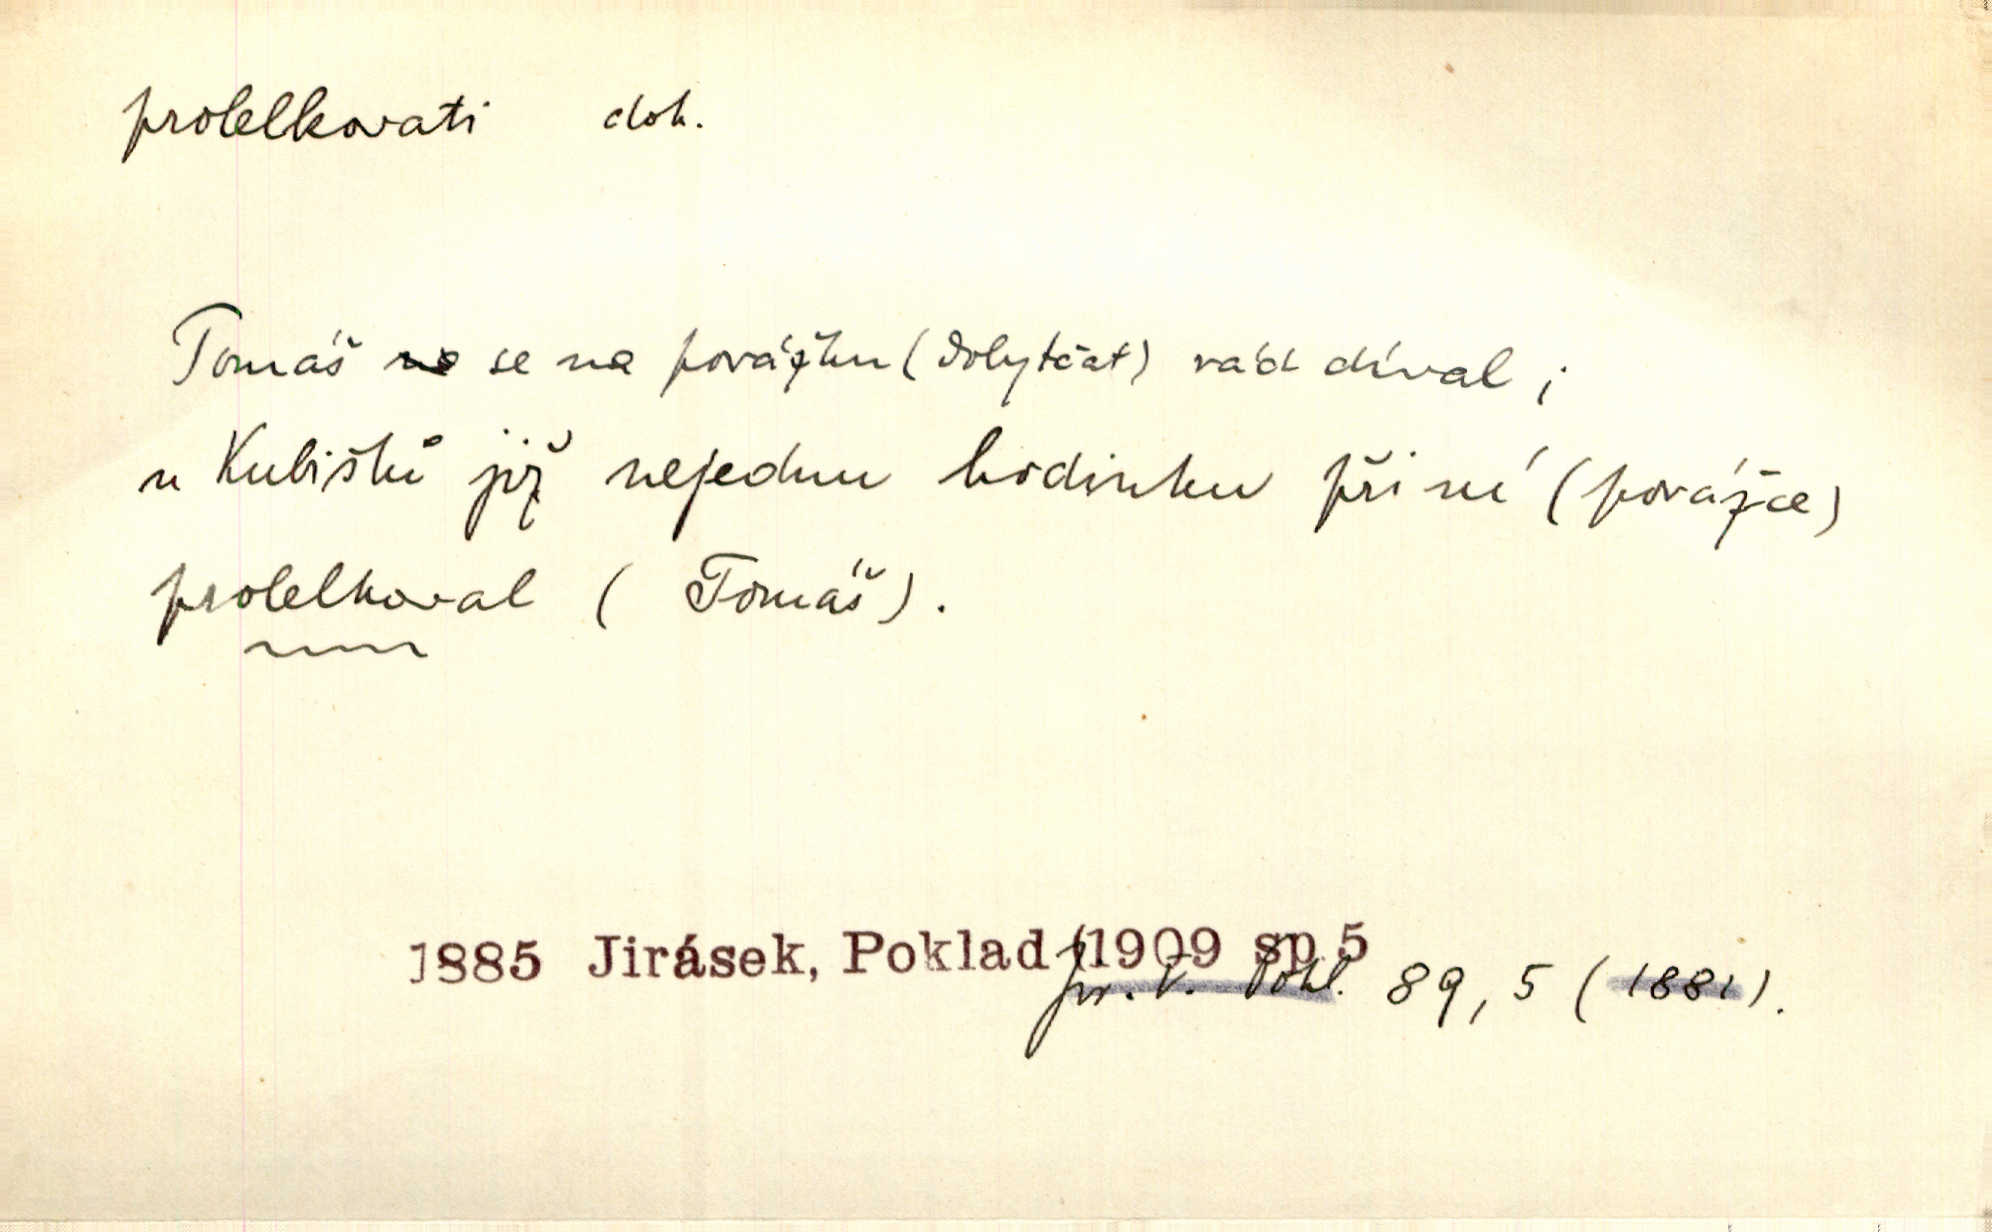 prolelkovati dok.
Tomáš se na povážku (dobytčat) rád díval;
u Kubištů již nejednu hodinku při ní (povážce)
prolelkoval (Tomáš).
1885 Jirásek, Poklad (1909 sp 5
Jir. V. Pokl. 89, 5 (1881).